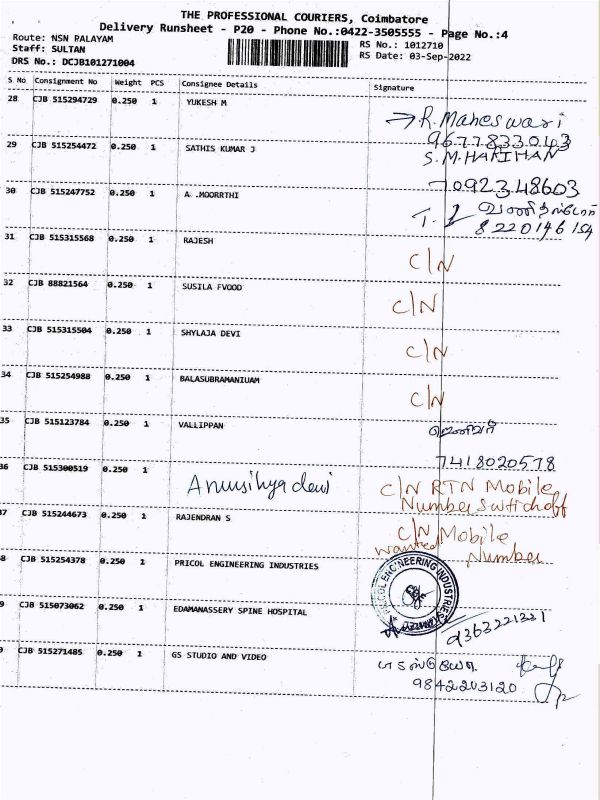 THE PROFESSIONAL COURIERS, Coimbatore
Delivery Runsheet - P20 - Phone No.:0422-3505555 - Page No.:4
Route: NSN PALAYAM
RS No.: 1012710
Staff: SULTAN
RS Date: 03-Sep-2022
DRS No.: DCJB101271004
S No Consignment No Weight PCS Consignee Details Signature
28 CJB 515294729 0.250 1 YUKESH M
R. Maheswari
9677833043
29 CJB 515254472 0.250 1 SATHIS KUMAR J
S.M.HARIHAN
7092348603
30 CJB 515247752 0.250 1 A .MOORRTHI
31 CJB 515315568 0.250 1 RAJESH C/N
32 CJB 88821564 0.250 1 SUSILA FVOOD C/N
33 CJB 515315504 0.250 1 SHYLAJA DEVI C/N
34 CJB 515254988 0.250 1 BALASUBRAMANIUAM C/N
35 CJB 515123784 0.250 1 VALLIPPAN
7418020578
36 CJB 515300519 0.250 1 Anusihya devi C/N RTN Mobile
Number Switchoff
37 CJB 515244673 0.250 1 RAJENDRAN S C/N Mobile
wanted Number
8 CJB 515254378 0.250 1 PRICOL ENGINEERING INDUSTRIES
PRICOL ENGINEERING INDUSTRIES
9 CJB 515073062 0.250 1 EDAMANASSERY SPINE HOSPITAL
9363221331
CJB 515271485 0.250 1 GS STUDIO AND VIDEO
9842203120